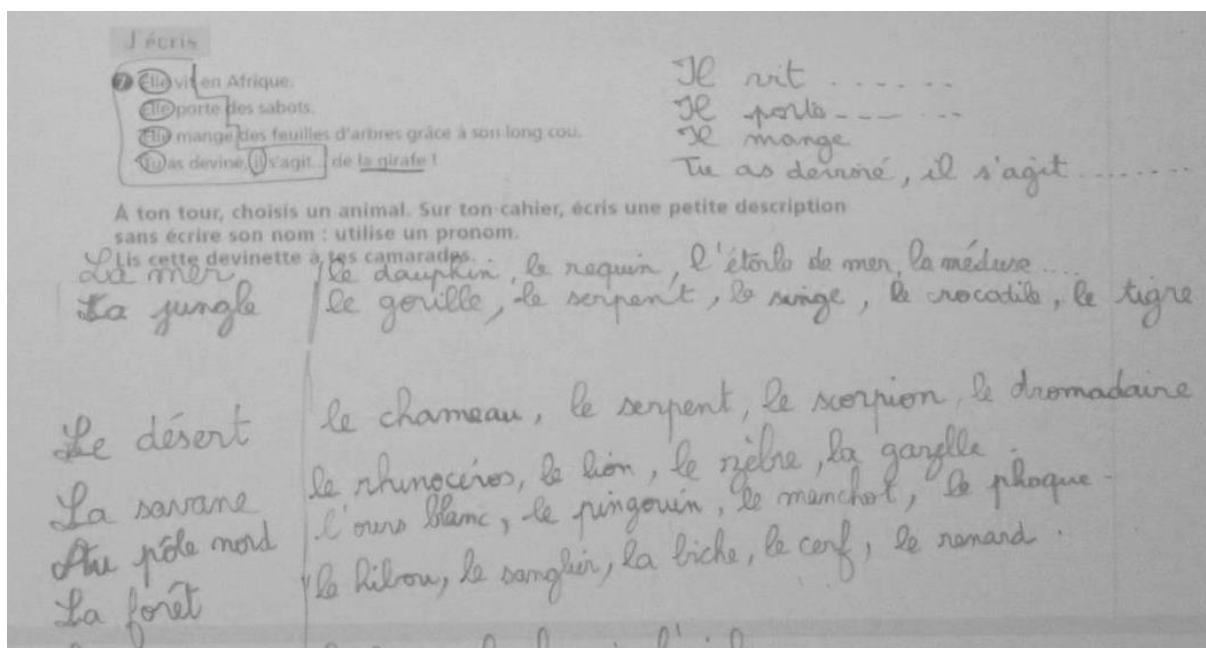 J'écris
7 Elle vit en Afrique.
Elle porte des sabots.
Elle mange des feuilles d'arbres grâce à son long cou.
Tu as deviné, il s'agit... de la girafe !
Il vit .......
Il porte--- ...
Il mange
Tu as deviné, il s'agit ........
A ton tour, choisis un animal. Sur ton cahier, écris une petite description
sans écrire son nom : utilise un pronom.
Lis cette devinette à tes camarades.
La mer le dauphin, le requin, l'étoile de mer, la méduse ...
La jungle le gorille, le serpent, le singe, le crocodile, le tigre
Le désert le chameau, le serpent, le scorpion, le dromadaire
La savane le rhinocéros, le lion, le zèbre, la gazelle.
Au pôle nord l'ours blanc, le pingouin, le manchot, le phoque.
La forêt le hibou, le sanglier, la biche, le cerf, le renard.